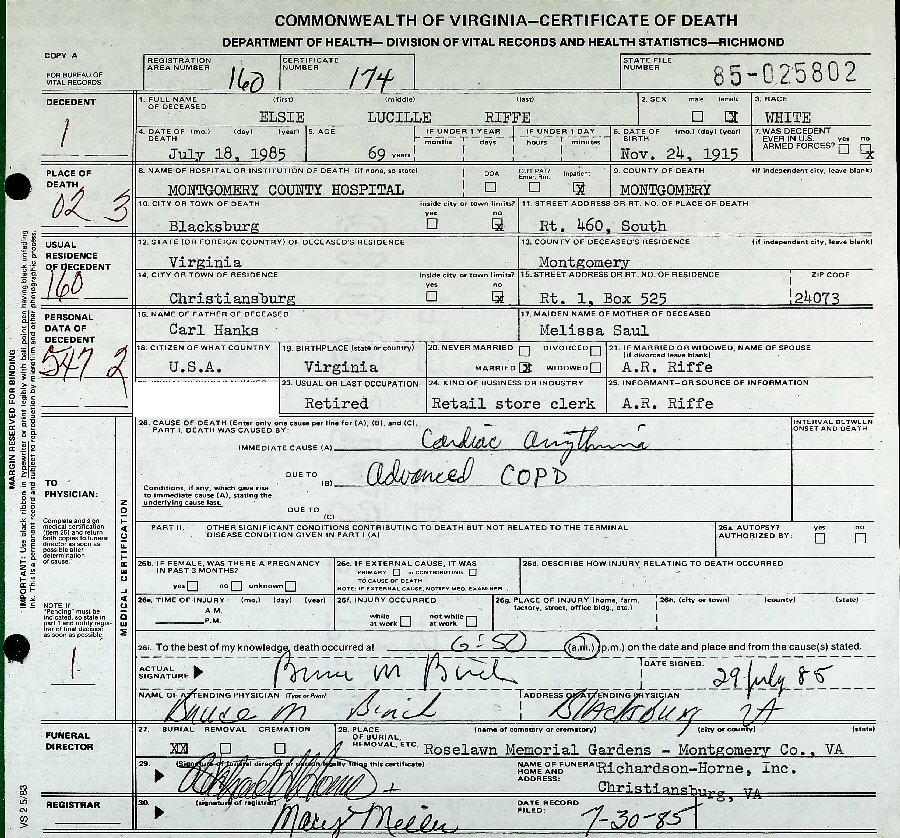 COMMONWEALTH OF VIRGINIA—CERTIFICATE OF DEATH
DEPARTMENT OF HEALTH— DIVISION OF VITAL RECORDS AND HEALTH STATISTICS—RICHMOND
COPY A
FOR BUREAU OF VITAL RECORDS
REGISTRATION AREA NUMBER 160 CERTIFICATE NUMBER 174 STATE FILE NUMBER 85-025802
DECEDENT
1
1. FULL NAME OF DECEASED (first) (middle) (last) 2. SEX male female 3. RACE
ELSIE LUCILLE RIFFE X WHITE
4. DATE OF DEATH (mo.) (day) (year) 5. AGE IF UNDER 1 YEAR months days IF UNDER 1 DAY hours minutes 6. DATE OF BIRTH (mo.) (day) (year) 7. WAS DECEDENT EVER IN U.S. ARMED FORCES? yes no
July 18, 1985 69 years Nov. 24, 1915 X
PLACE OF DEATH
02 3
8. NAME OF HOSPITAL OR INSTITUTION OF DEATH (if none, so state) DOA OUT PAT/ Emer. Rm. Inpatient 9. COUNTY OF DEATH (if independent city, leave blank)
MONTGOMERY COUNTY HOSPITAL X MONTGOMERY
10. CITY OR TOWN OF DEATH inside city or town limits? yes no 11. STREET ADDRESS OR RT. NO. OF PLACE OF DEATH
Blacksburg X Rt. 460, South
USUAL RESIDENCE OF DECEDENT
160
12. STATE (OR FOREIGN COUNTRY) OF DECEASED'S RESIDENCE 13. COUNTY OF DECEASED'S RESIDENCE (if independent city, leave blank)
Virginia Montgomery
14. CITY OR TOWN OF RESIDENCE inside city or town limits? yes no 15. STREET ADDRESS OR RT. NO. OF RESIDENCE ZIP CODE
Christiansburg X Rt. 1, Box 525 24073
PERSONAL DATA OF DECEDENT
547 2
16. NAME OF FATHER OF DECEASED 17. MAIDEN NAME OF MOTHER OF DECEASED
Carl Hanks Melissa Saul
18. CITIZEN OF WHAT COUNTRY 19. BIRTHPLACE (state or country) 20. NEVER MARRIED DIVORCED MARRIED X WIDOWED 21. IF MARRIED OR WIDOWED, NAME OF SPOUSE (if divorced leave blank)
U.S.A. Virginia A.R. Riffe
23. USUAL OR LAST OCCUPATION 24. KIND OF BUSINESS OR INDUSTRY 25. INFORMANT—OR SOURCE OF INFORMATION
Retired Retail store clerk A.R. Riffe
MARGIN RESERVED FOR BINDING
IMPORTANT: Use black ribbon in typewriter or print legibly with ball point pen having black unfading ink. This is a permanent record and subject to reproduction by microfilm and other photographic process.
TO PHYSICIAN:
Complete and sign medical certification (item 26) and return both copies to funeral director as soon as possible after determination of cause.
NOTE: If "Pending" must be indicated, so state in part I and notify registrar of final decision as soon as possible.
1
MEDICAL CERTIFICATION
26. CAUSE OF DEATH (Enter only one cause per line for (A), (B), and (C).
PART I. DEATH WAS CAUSED BY: INTERVAL BETWEEN ONSET AND DEATH
IMMEDIATE CAUSE (A) Cardiac arrythmia
DUE TO (B) Advanced COPD
Conditions, if any, which gave rise to immediate cause (A), stating the underlying cause last.
DUE TO (C)
PART II. OTHER SIGNIFICANT CONDITIONS CONTRIBUTING TO DEATH BUT NOT RELATED TO THE TERMINAL DISEASE CONDITION GIVEN IN PART I (A) 26a. AUTOPSY? AUTHORIZED BY: yes no
26b. IF FEMALE, WAS THERE A PREGNANCY IN PAST 3 MONTHS? yes no unknown
26c. IF EXTERNAL CAUSE, IT WAS PRIMARY or CONTRIBUTING TO CAUSE OF DEATH NOTE: IF EXTERNAL CAUSE, NOTIFY MED. EXAMINER
26d. DESCRIBE HOW INJURY RELATING TO DEATH OCCURRED
26e. TIME OF INJURY (mo.) (day) (year) A.M. P.M. 26f. INJURY OCCURRED while at work not while at work 26g. PLACE OF INJURY (home, farm, factory, street, office bldg., etc.) 26h. (city or town) (county) (state)
26i. To the best of my knowledge, death occurred at 6:50 (a.m.) (p.m.) on the date and place and from the cause(s) stated.
ACTUAL SIGNATURE Bruce M Birch DATE SIGNED: 29 July 85
NAME OF ATTENDING PHYSICIAN (Type or Print) ADDRESS OF ATTENDING PHYSICIAN
Bruce M Birch Blacksburg VA
FUNERAL DIRECTOR
27. BURIAL REMOVAL CREMATION 28. PLACE OF BURIAL, REMOVAL, ETC. (name of cemetery or crematory) (city or county) (state)
XX Roselawn Memorial Gardens - Montgomery Co., VA
29. (Signature of funeral director or person legally filing this certificate) NAME OF FUNERAL HOME AND ADDRESS: Richardson-Horne, Inc.
Christiansburg, VA
REGISTRAR
30. (signature of registrar) Mary Miller DATE RECORD FILED: 7-30-85
VS 2 5/83